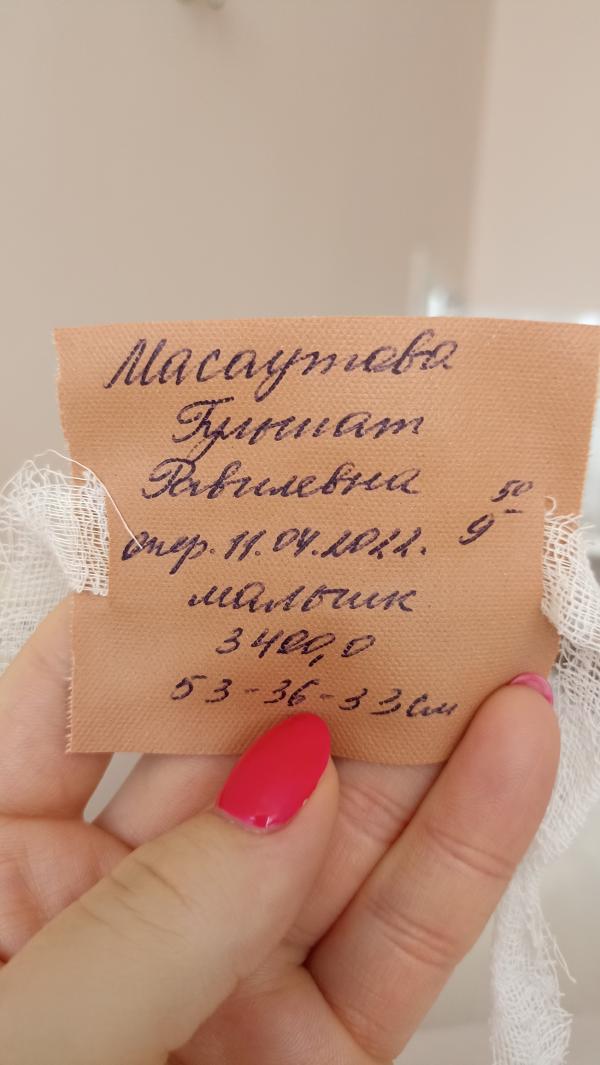 Масаутова
Гульшат
Равилевна
опер. 11.04.2022. 9 50
мальчик
3400,0
53-36-33 см